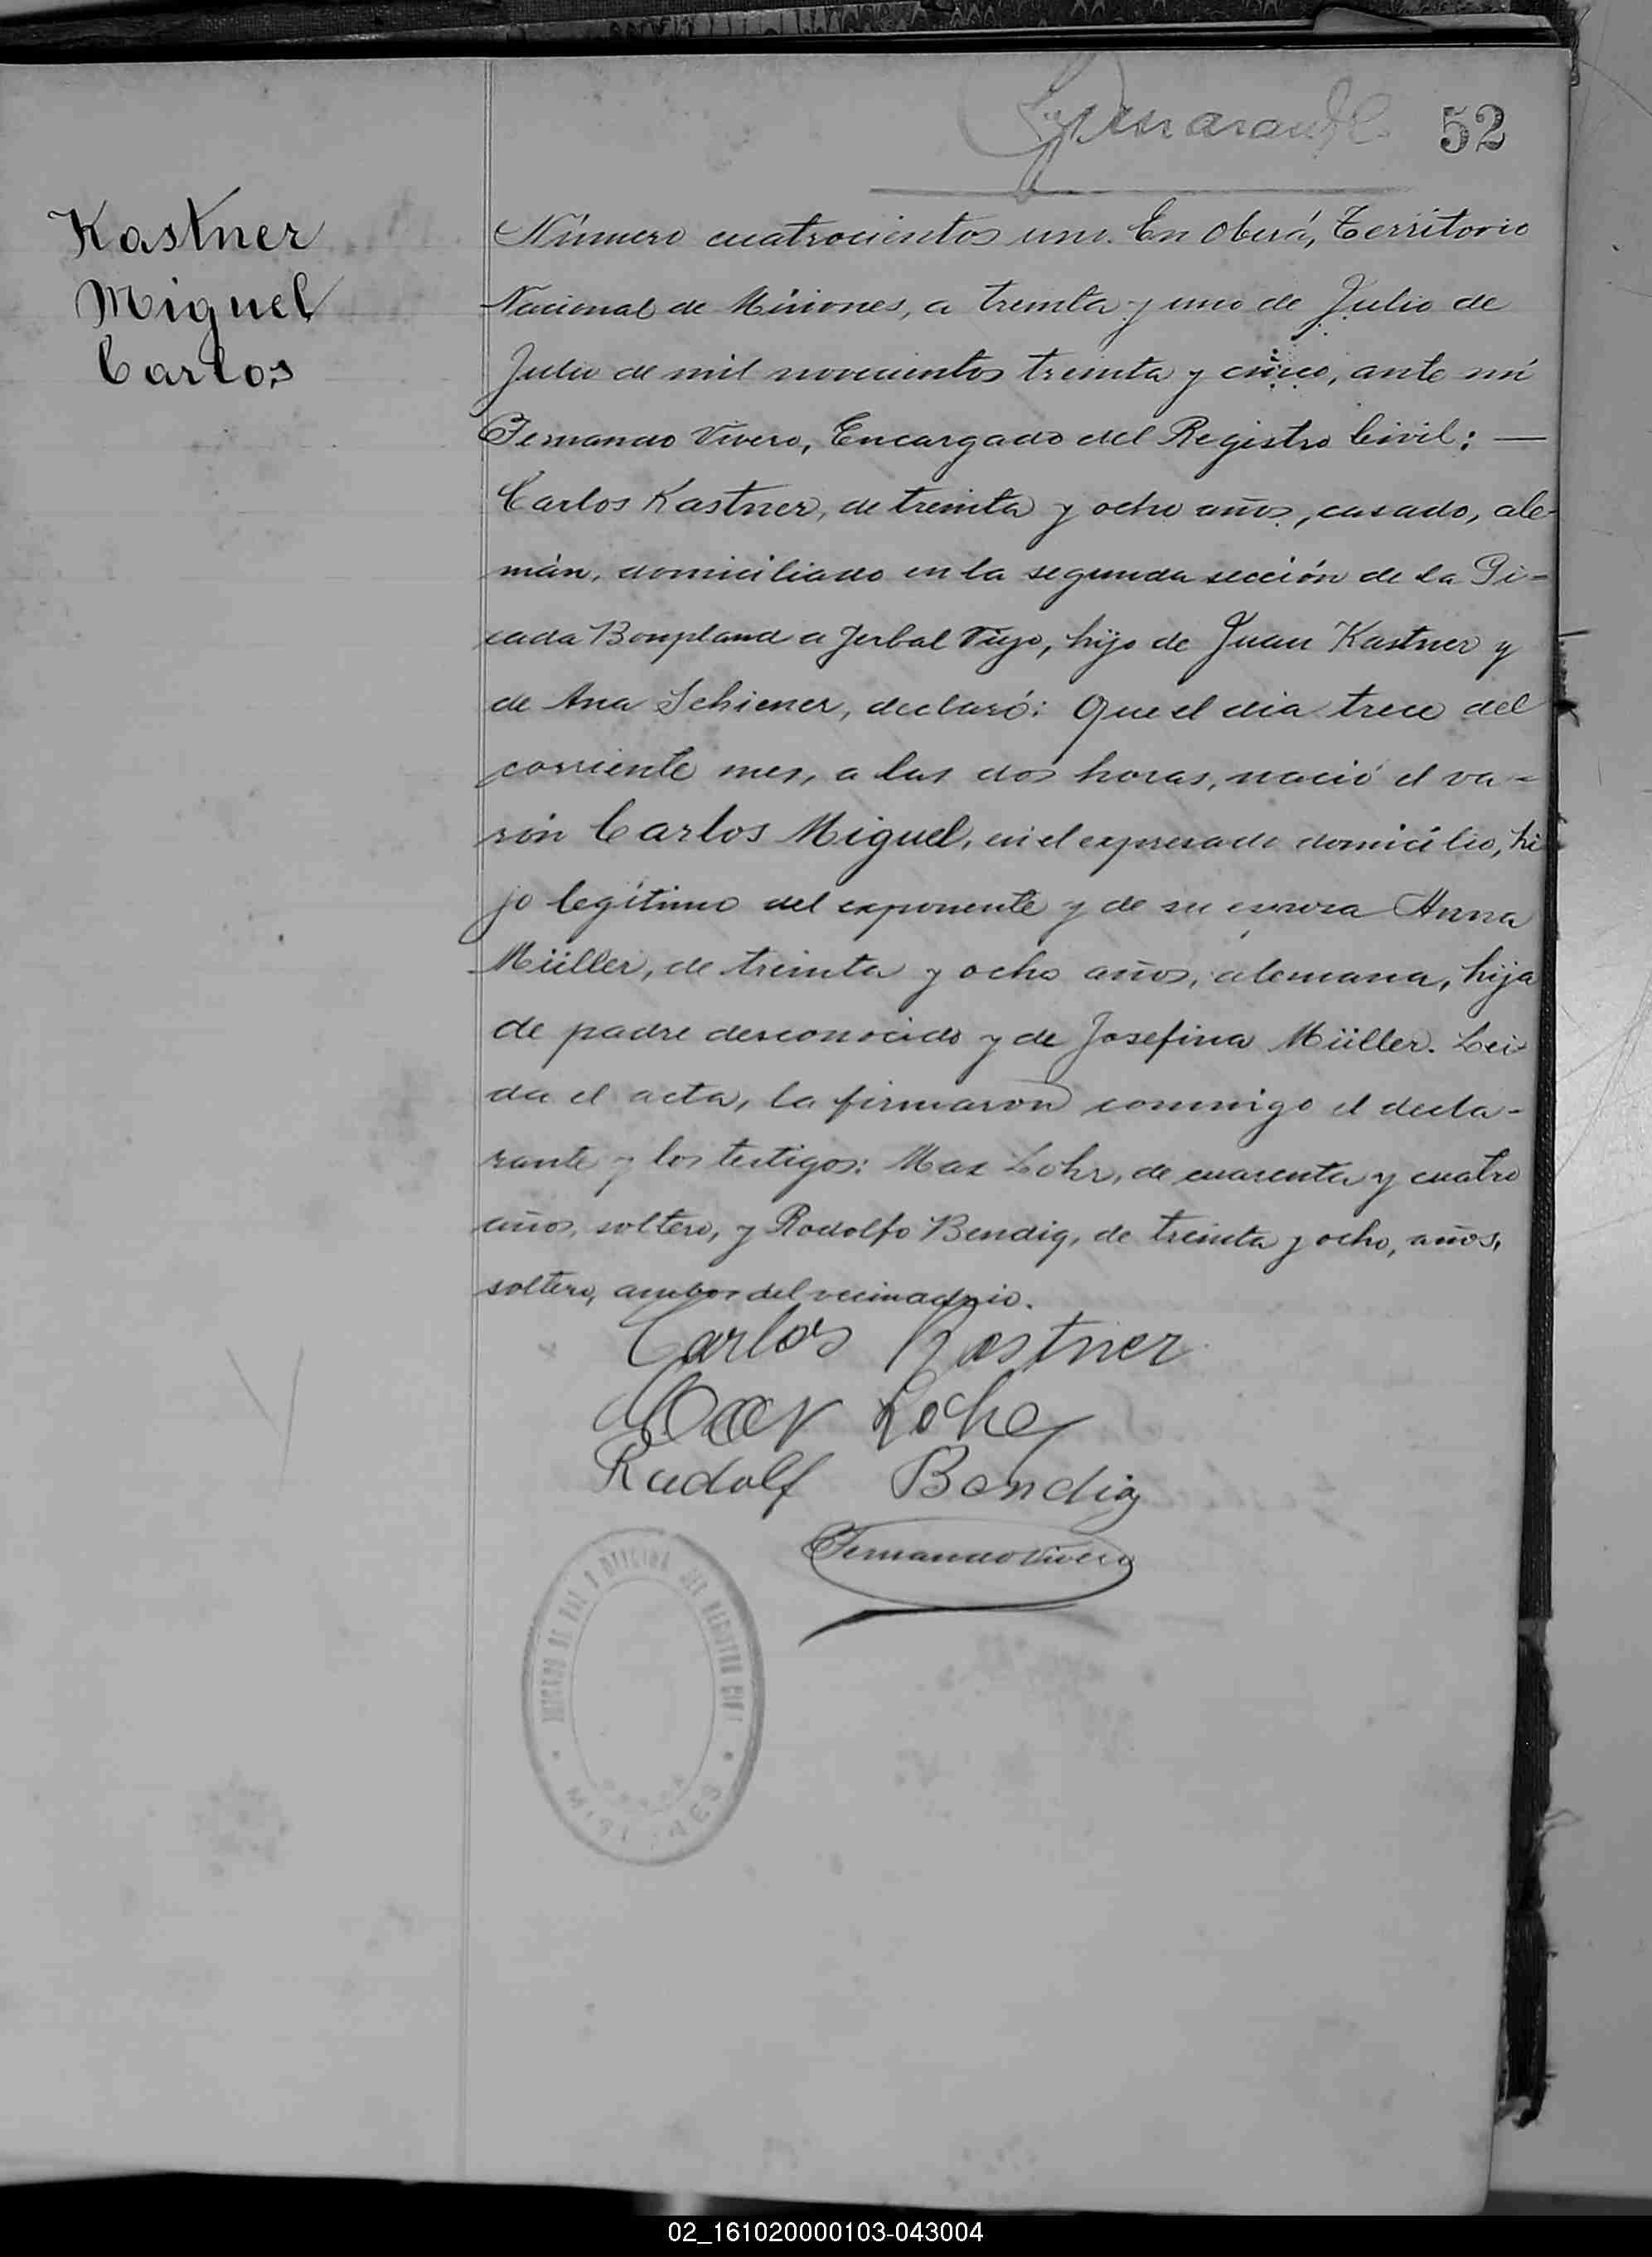 52
Kastner
Miguel
Carlos
Número cuatrocientos uno. En Oberá, Territorio
Nacional de Misiones, a treinta y uno de Julio de
Julio de mil novecientos treinta y cinco, ante mí
Fernando Vivero, Encargado del Registro Civil: —
Carlos Kastner, de treinta y ocho años, casado, ale-
mán, domiciliado en la segunda sección de la Pi-
cada Bonpland a Yerbal Viejo, hijo de Juan Kastner y
de Ana Schiener, declaró: Que el dia trece del
corriente mes, a las dos horas, nació el va-
rón Carlos Miguel, en el expresado domicilio, hi
jo legítimo del exponente y de su esposa Anna
Müller, de treinta y ocho años, alemana, hija
de padre desconocido y de Josefina Müller. Lei-
da el acta, la firmaron conmigo el decla-
rante y los testigos: Max Lohr, de cuarenta y cuatro
años, soltero, y Rodolfo Bendig, de treinta y ocho, años,
soltero, ambos del vecindario.
Carlos Kastner
Max Lohr
Rudolf Bendig
Fernando Vivero
JUZGADO DE PAZ Y OFICINA DEL REGISTRO CIVIL
MISIONES
02_161020000103-043004